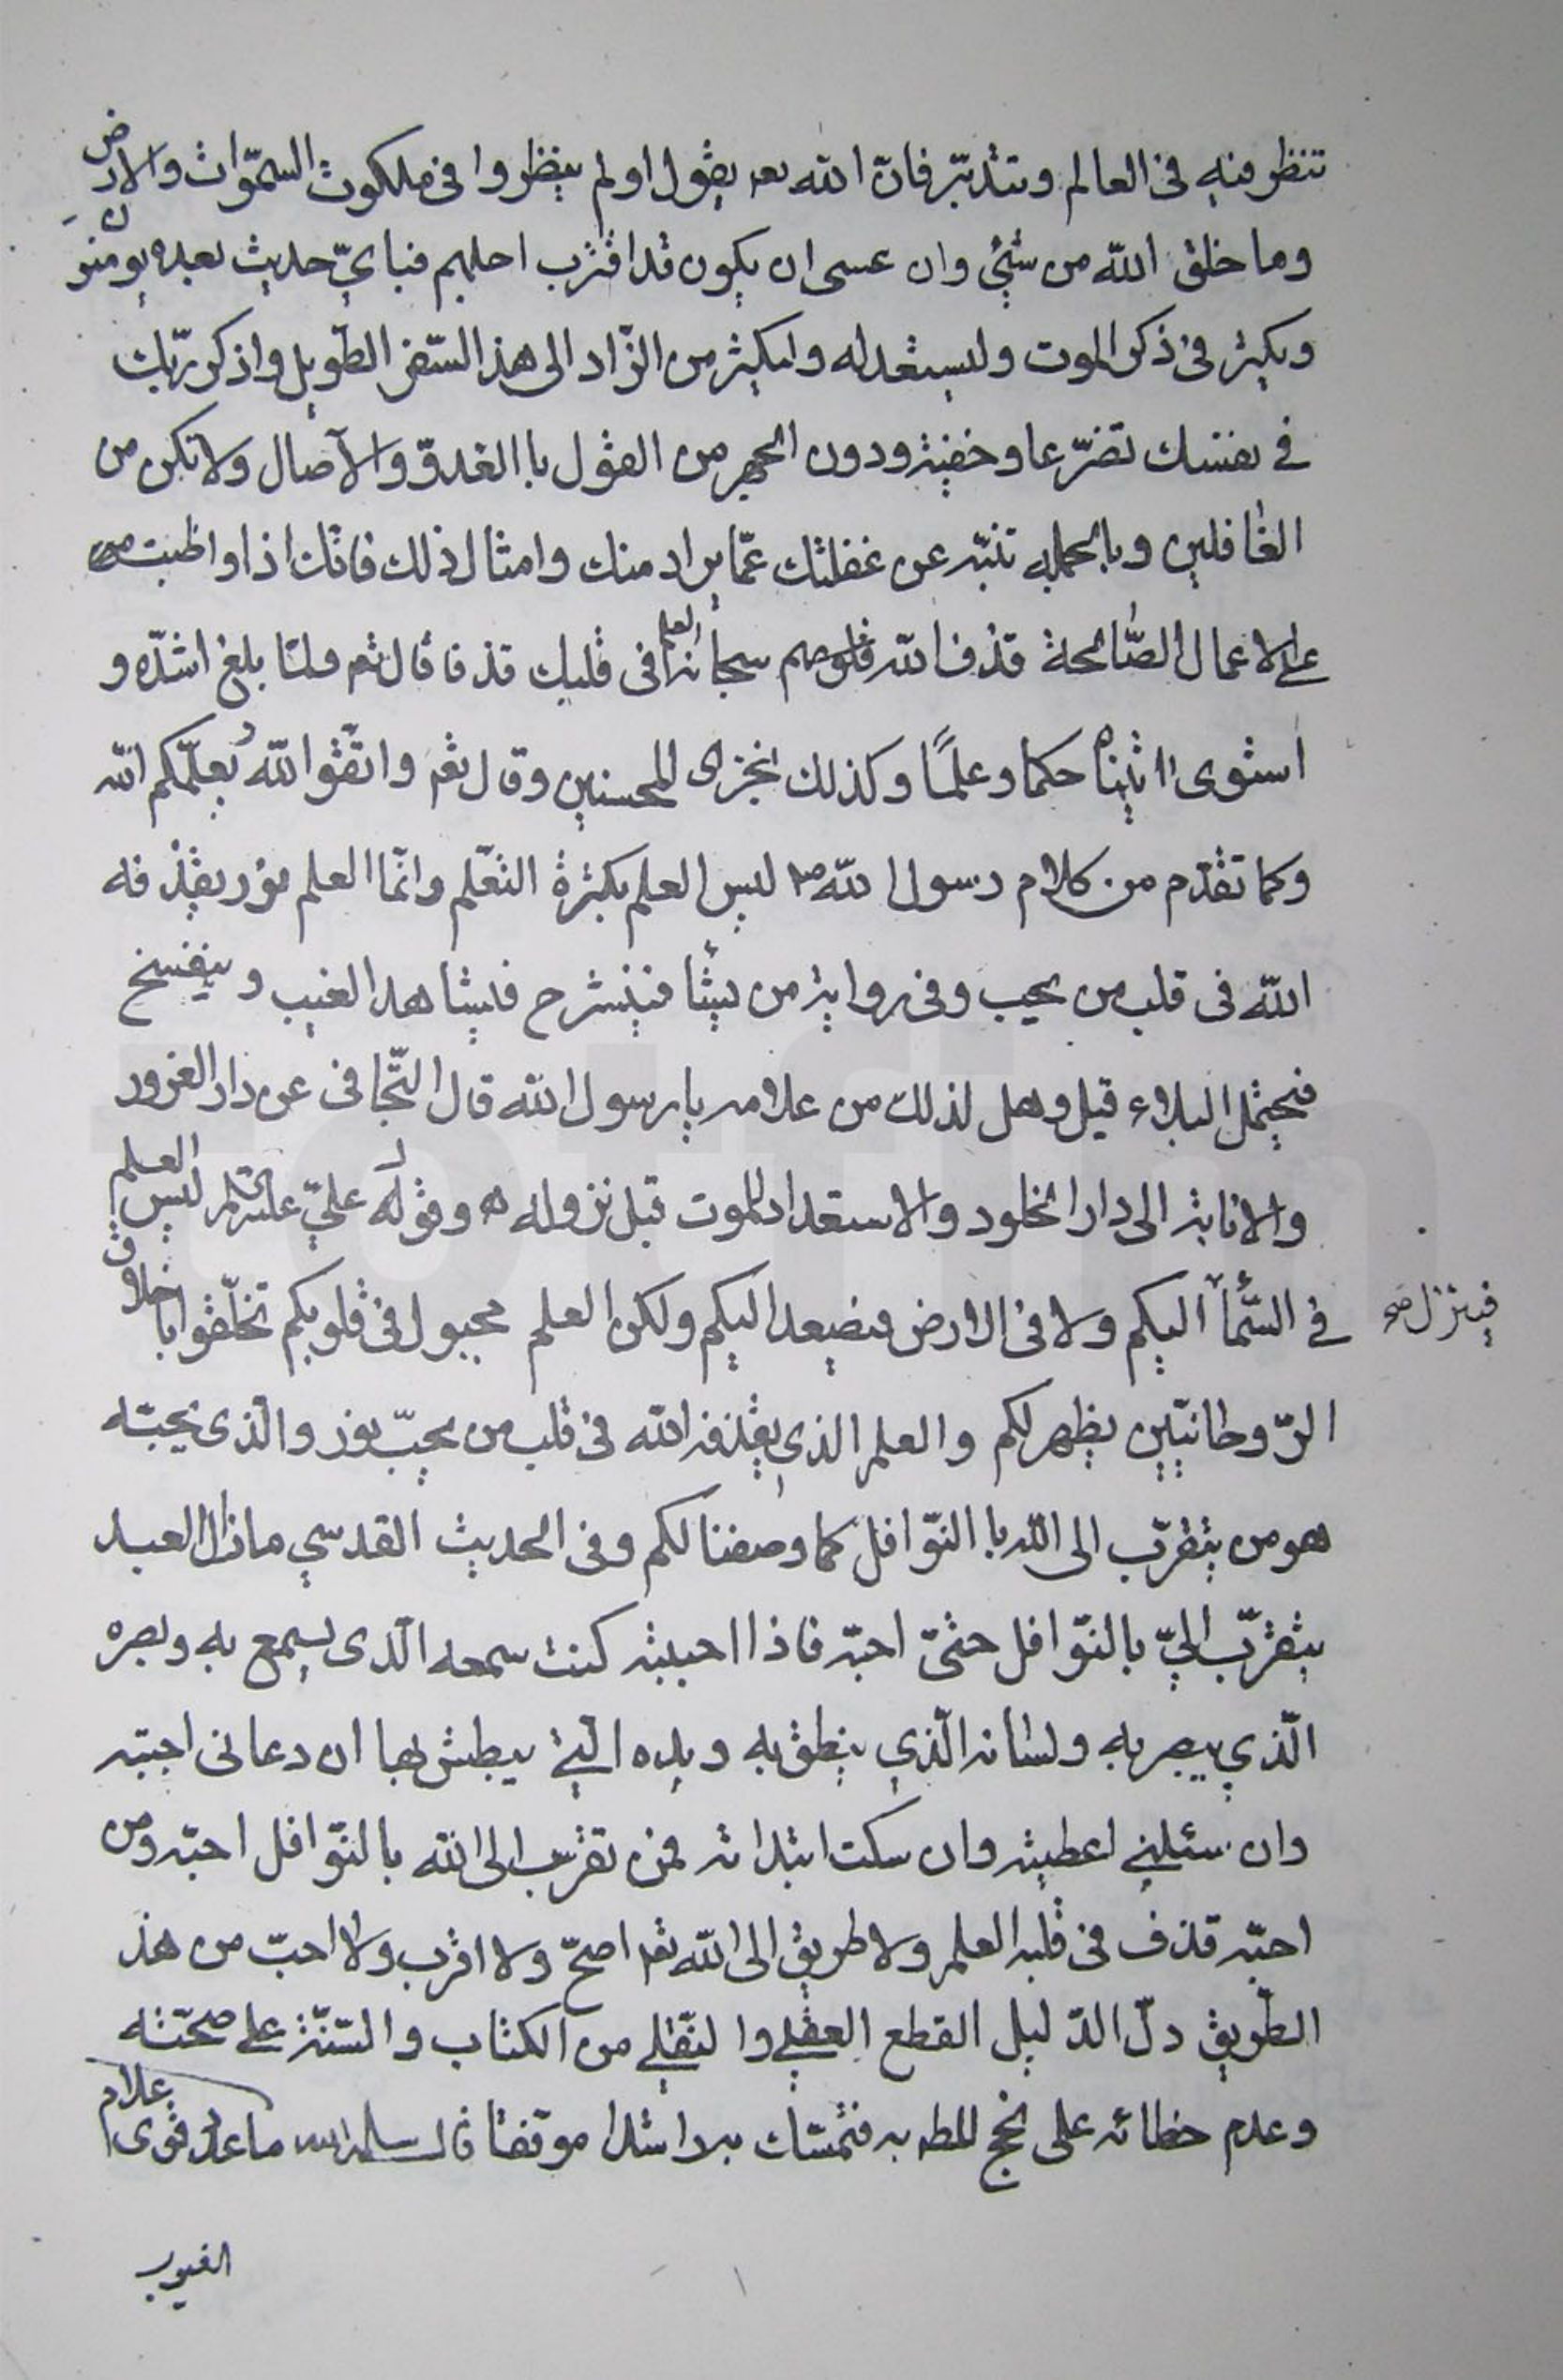 تنظر فيه في العالم وتتدبّر فانّ الله تعالى يقول اولم ينظروا في ملكوت السمّوات والارض
وما خلق الله من شئ وان عسى ان يكون قد اقترب اجلهم فباي حديث بعده يومنون
ويكثر في ذكر الموت وليستعد له وليكثر من الزّاد الى هذ السّفر الطّويل واذكر ربّك
في نفسك تضرّعا وخفية ودون الجهر من القول باالغدوّ والآصال ولا تكن من
الغافلين وبالجمله تنبّه عن غفلتك عمّا يراد منك وامثال ذلك فانّك اذا واظبت
على الاعمال الصّالحة قذف الله سبحانه العلم في قلبك قذفا قال تعالى ولمّا بلغ اشدّه و
استوى اتيناه حكما وعلمًا وكذلك نجزى المحسنين وقال تعالى واتّقوا اللهُ يعلّمكم الله
وكما تقدّم من كلام رسول الله ص ليس العلم بكثرة التعّلم وانّما العلم نور يقذفه
الله في قلب من يحب وفي رواية من يشا فينشرح فيشاهد الغيب وينفسخ
فيحتمل البلاء قيل وهل لذلك من علامه يا رسول الله قال التّجافي عن دار الغرور
والانابة الى دار الخلود والاستعداد للموت قبل نزوله ه وقوله عليّ عليه السلام ليس العلم
في السّمآء اليكم ولا في الارض فيصعد اليكم ولكن العلم مجبول في قلوبكم تخلّقوا باخلاق
فينزل صح
الرّوحانيّين يظهر لكم والعلم الذي يقذفه الله في قلب من يحبّ نور والّذى يحبّه
هو من يتقرّب الى الله باالنوّافل كما وصفنا لكم وفي الحديث القدسي مازال العبد
يتقرّب اليّ بالنوّافل حتّى احبّه فاذا احببته كنت سمعه الّذى يسمع به وبصره
الّذي يبصر به ولسانه الّذي ينطق به ويده الّتي يبطش بها ان دعانى اجبته
وان سئلني اعطيته وان سكت ابتداته فمن تقرّب الى الله بالنوّافل احبّه ومن
احبّه قذف في قلبه العلم ولا طريق الى الله تعالى اصحّ ولا اقرب ولا احبّ من هذ
الطّريق دلّ الدّليل القطع العقلي والنقّلي من الكتاب والسّنّة على صحّته
وعدم خطائه على نجح المطلب به فتمسّك به راشدا موفقا قال سلمه الله ما علامة قوى علام
الغيوب